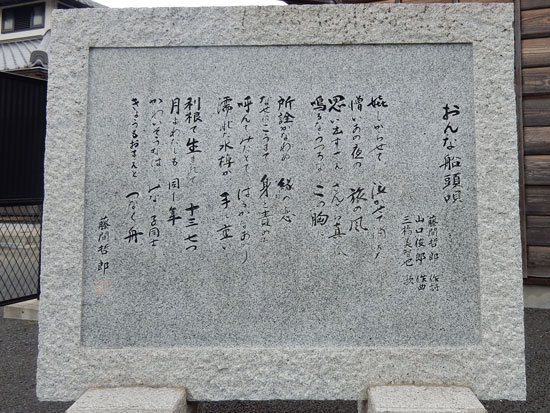 おんな船頭唄
藤間哲郎 作詩
山口俊郎 作曲
三橋美智也 歌
嬉しがらせて 泣かせて消えた
憎いあの夜の 旅の風
思い出すさえ ざんざら真菰
鳴るなうつろな この胸に
所詮かなわぬ 縁の恋
なぜにこうまで 身を責める
呼んでみたとて はるかなあかり
濡れた水棹が 手に重い
利根で生まれて 十三七つ
月よわたしも 同じ年
かわいそうなは みなし子同士
きょうもおまえと つなぐ舟
藤間哲郎